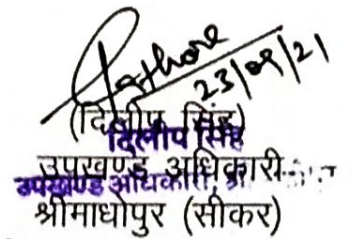 Rathore
23/09/21
(दिलीप सिंह)
दिलीप सिंह
उपखण्ड अधिकारी
उपखण्ड अधिकारी, श्री
श्रीमाधोपुर (सीकर)